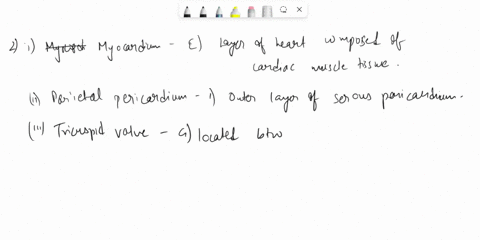 2) i) Myocardium - E) Layer of heart composed of
cardiac muscle tissue.
(ii) Parietal pericardium - i) Outer layer of serous pericardium.
(iii) Tricuspid valve - G) located btw